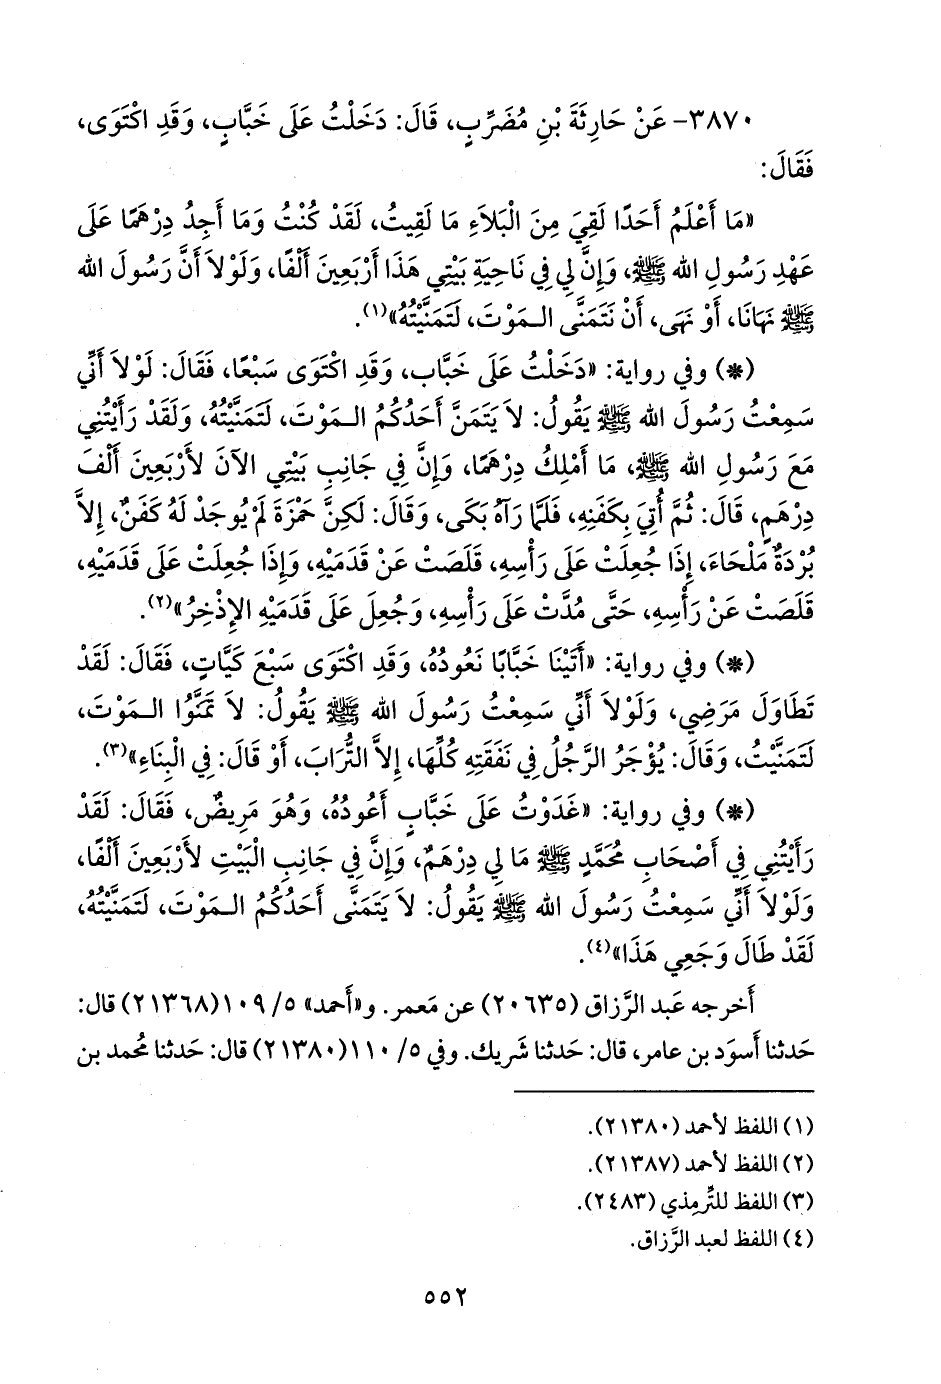 ٣٨٧٠- عَنْ حَارِثَةَ بْنِ مُضَرِّبٍ، قَالَ: دَخَلْتُ عَلَى خَبَّابٍ، وَقَدِ اكْتَوَى،
فَقَالَ:
«مَا أَعْلَمُ أَحَدًا لَقِيَ مِنَ الْبَلاَءِ مَا لَقِيتُ، لَقَدْ كُنْتُ وَمَا أَجِدُ دِرْهَمًا عَلَى
عَهْدِ رَسُولِ الله ﷺ، وَإِنَّ لِي فِي نَاحِيَةِ بَيْتِي هَذَا أَرْبَعِينَ أَلْفًا، وَلَوْلاَ أَنَّ رَسُولَ الله
ﷺ نَهَانَا، أَوْ نَهَى، أَنْ نَتَمَنَّى الـمَوْتَ، لَتَمَنَّيْتُهُ»(١).
(*) وفي رواية: «دَخَلْتُ عَلَى خَبَّاب، وَقَدِ اكْتَوَى سَبْعًا، فَقَالَ: لَوْلاَ أَنِّي
سَمِعْتُ رَسُولَ الله ﷺ يَقُولُ: لاَ يَتَمَنَّ أَحَدُكُمُ الـمَوْتَ، لَتَمَنَّيْتُهُ، وَلَقَدْ رَأَيْتُنِي
مَعَ رَسُولِ الله ﷺ، مَا أَمْلِكُ دِرْهَمًا، وَإِنَّ فِي جَانِبِ بَيْتِي الآنَ لأَرْبَعِينَ أَلْفَ
دِرْهَمٍ، قَالَ: ثُمَّ أُتِيَ بِكَفَنِهِ، فَلَمَّا رَآهُ بَكَى، وَقَالَ: لَكِنَّ حَمْزَةَ لَمْ يُوجَدْ لَهُ كَفَنٌ، إِلاَّ
بُرْدَةٌ مَلْحَاءَ، إِذَا جُعِلَتْ عَلَى رَأْسِهِ، قَلَصَتْ عَنْ قَدَمَيْهِ، وَإِذَا جُعِلَتْ عَلَى قَدَمَيْهِ،
قَلَصَتْ عَنْ رَأْسِهِ، حَتَّى مُدَّتْ عَلَى رَأْسِهِ، وَجُعِلَ عَلَى قَدَمَيْهِ الإِذْخِرُ»(٢).
(*) وفي رواية: «أَتَيْنَا خَبَّابًا نَعُودُهُ، وَقَدِ اكْتَوَى سَبْعَ كَيَّاتٍ، فَقَالَ: لَقَدْ
تَطَاوَلَ مَرَضِي، وَلَوْلاَ أَنِّي سَمِعْتُ رَسُولَ الله ﷺ يَقُولُ: لاَ تَمَنَّوُا الـمَوْتَ،
لَتَمَنَّيْتُ، وَقَالَ: يُؤْجَرُ الرَّجُلُ فِي نَفَقَتِهِ كُلِّهَا، إِلاَّ التُّرَابَ، أَوْ قَالَ: فِي الْبِنَاءِ»(٣).
(*) وفي رواية: «غَدَوْتُ عَلَى خَبَّابٍ أَعُودُهُ، وَهُوَ مَرِيضٌ، فَقَالَ: لَقَدْ
رَأَيْتُنِي فِي أَصْحَابِ مُحَمَّدٍ ﷺ مَا لِي دِرْهَمٌ، وَإِنَّ فِي جَانِبِ الْبَيْتِ لأَرْبَعِينَ أَلْفًا،
وَلَوْلاَ أَنِّي سَمِعْتُ رَسُولَ الله ﷺ يَقُولُ: لاَ يَتَمَنَّى أَحَدُكُمُ الـمَوْتَ، لَتَمَنَّيْتُهُ،
لَقَدْ طَالَ وَجَعِي هَذَا»(٤).
أَخرجه عَبد الرَّزاق (٢٠٦٣٥) عن مَعمر. و«أَحمد» ٥/ ١٠٩(٢١٣٦٨) قال:
حَدثنا أَسوَد بن عامر، قال: حَدثنا شَريك. وفي ٥/ ١١٠(٢١٣٨٠) قال: حَدثنا مُحمد بن
(١) اللفظ لأحمد (٢١٣٨٠).
(٢) اللفظ لأحمد (٢١٣٨٧).
(٣) اللفظ للتِّرمِذي (٢٤٨٣).
(٤) اللفظ لعبد الرَّزاق.
٥٥٢